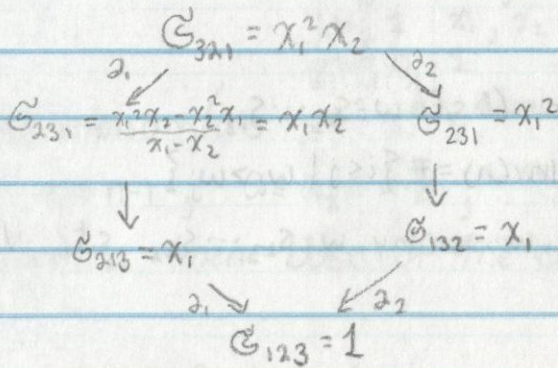 𝔖₃₂₁ = x₁²x₂
∂₁ ∂₂
𝔖₂₃₁ = (x₁²x₂ - x₂²x₁)/(x₁ - x₂) = x₁x₂ 𝔖₂₃₁ = x₁²
𝔖₂₁₃ = x₁ 𝔖₁₃₂ = x₁
∂₁ ∂₂
𝔖₁₂₃ = 1